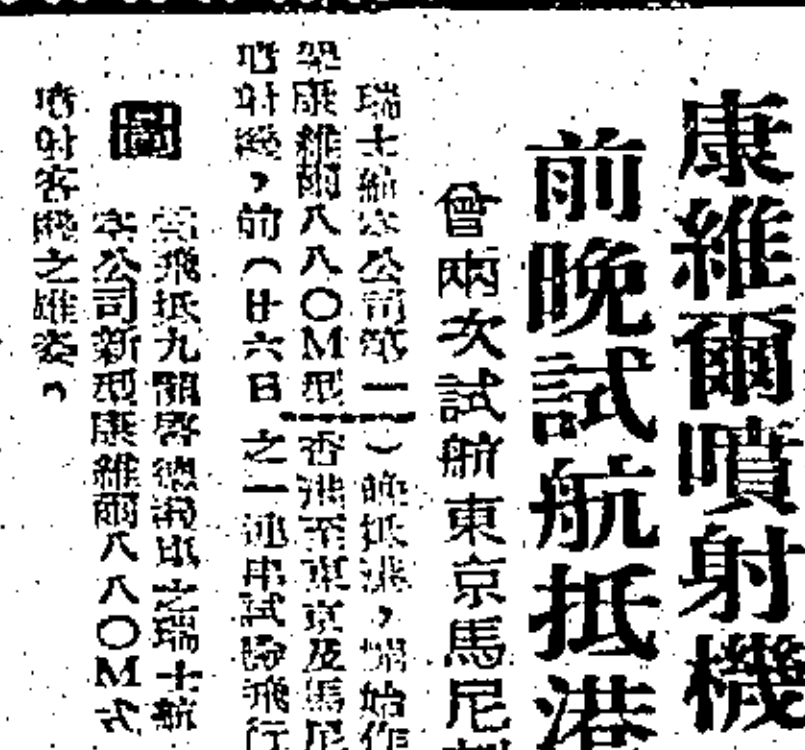 康維爾噴射機
前晚試航抵港
曾兩次試航東京馬尼
瑞士航空公司第一
架康維爾八八〇M型
噴射機，前（廿六日
）晚抵港，開始作
香港至東京及馬尼
之一連串試驗飛行
圖
為飛抵九龍啓德機場之瑞士航
空公司新型康維爾八八〇M式
噴射客機之雄姿。